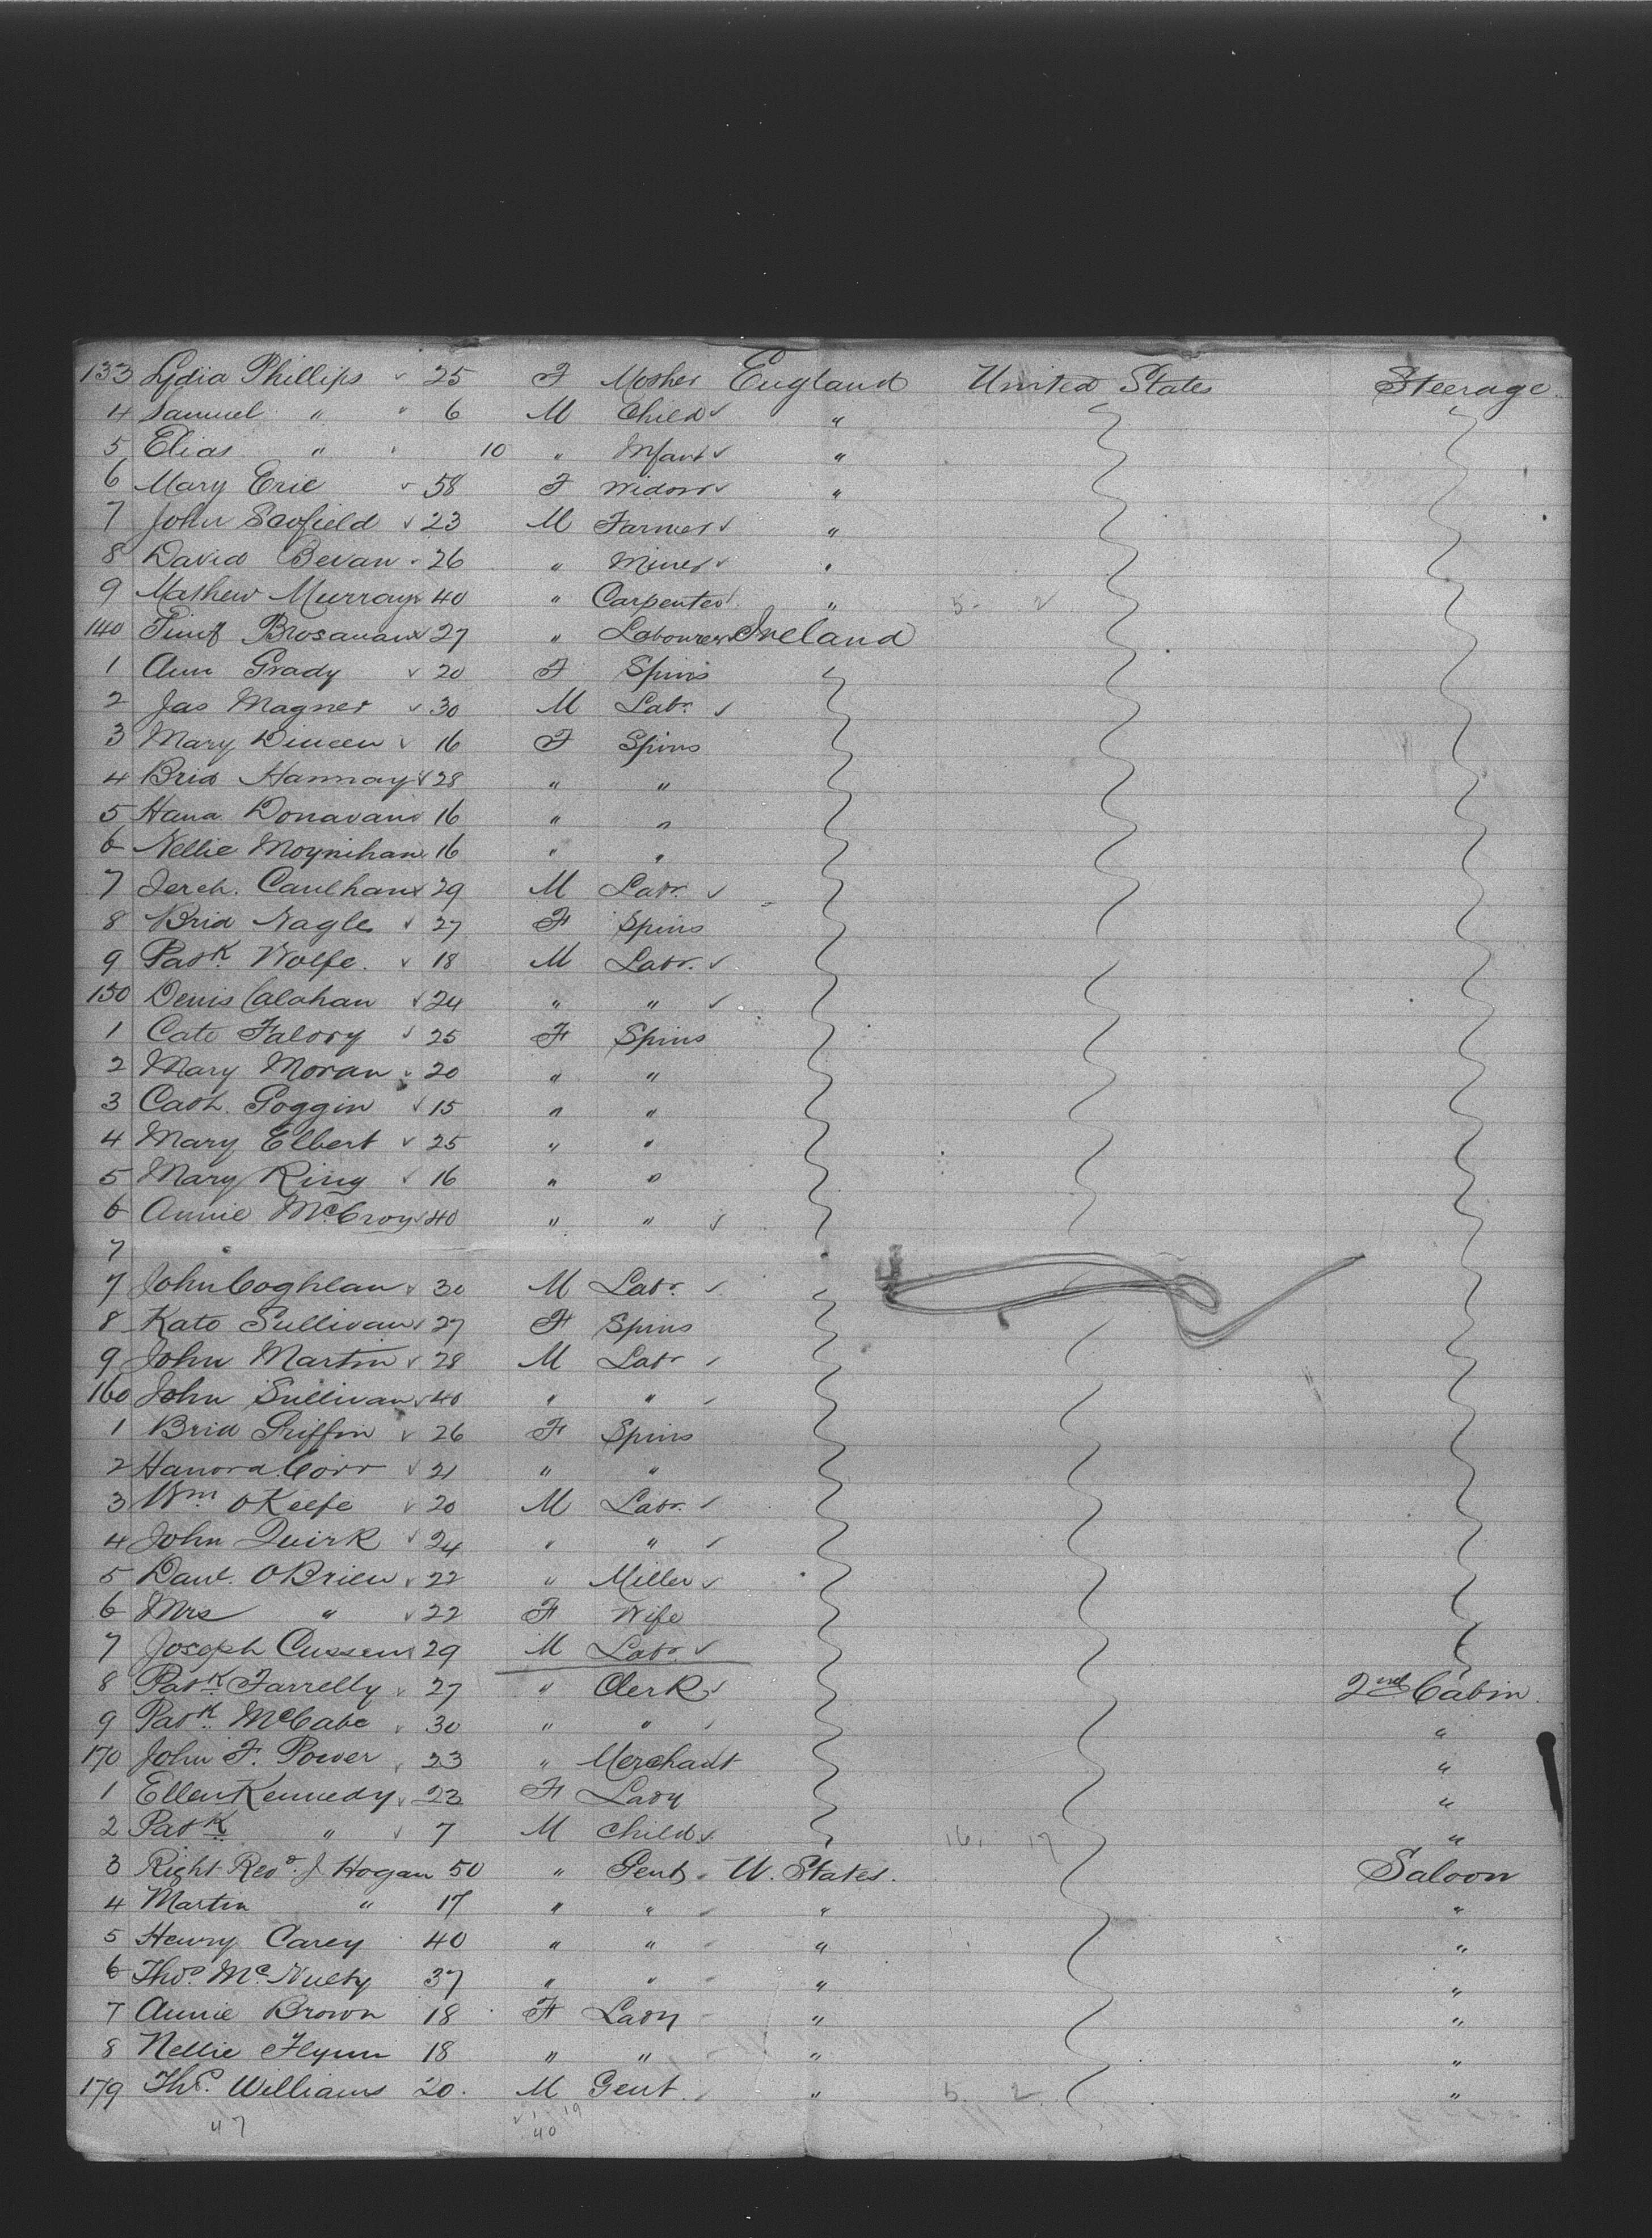 133 Lydia Phillips 25 F Mother England United States Steerage
4 Samuel " 6 M Child "
5 Elias " 10 " Infant "
6 Mary Eric 58 F Widow "
7 John Scofield 23 M Farmer "
8 David Bevan 26 " Miner "
9 Mathew Murray 40 " Carpenter " 5 2
140 Timy Brosanan 27 " Labourer Ireland
1 Ann Grady 20 F Spins
2 Jas Magner 30 M Labr.
3 Mary Dineen 16 F Spins
4 Brid Hannay 28 " "
5 Hana Donavan 16 " "
6 Nellie Moynihan 16 " "
7 Jerch. Caulhan 29 M Labr.
8 Brid Nagle 27 F Spins
9 Patk Wolfe. 18 M Labr.
150 Denis Calahan 24 " "
1 Cate Falory 25 F Spins
2 Mary Moran 20 " "
3 Cath. Goggin 15 " "
4 Mary Elbert 25 " "
5 Mary King 16 " "
6 Annie McCroy 40 " "
7
7 John Coghlan 30 M Labr.
8 Kate Sullivan 27 F Spins
9 John Martin 28 M Labr
160 John Sullivan 40 " "
1 Brid Griffin 26 F Spins
2 Hanora Corr 21 " "
3 Wm OKeefe 20 M Labr.
4 John Quirk 24 " "
5 Danl. OBrien 22 " Miller
6 Mrs " 22 F Wife
7 Joseph Cussen 29 M Labr.
8 Patk Farrelly 27 " Clerk 2nd Cabin.
9 Patk McCabe 30 " " "
170 John F. Power 23 " Merchant "
1 Ellen Kennedy 23 F Lady "
2 Patk " 7 M Child 16 17 "
3 Right Revd. J Hogan 50 " Gent U. States. Saloon
4 Martin " 17 " " " "
5 Henry Carey 40 " " " "
6 Thos. Mc.Nulty 37 " " " "
7 Annie Brown 18 F Lady " "
8 Nellie Flynn 18 " " " "
179 Ths. Williams 20. M Gent. " 5 2 "
47 40 19